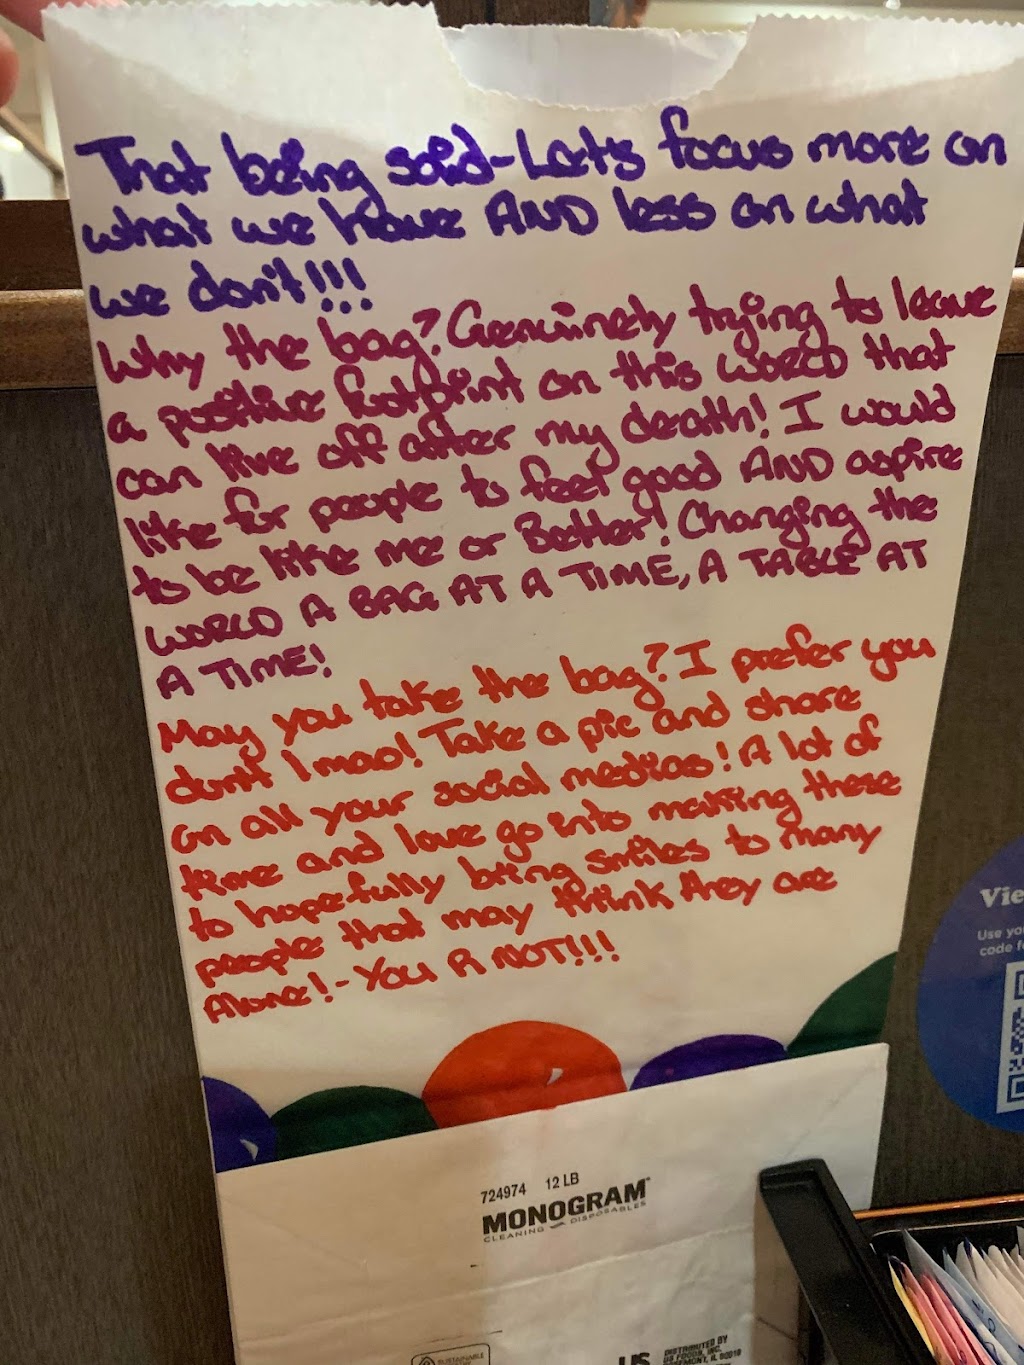 That being said-Let's focus more on
what we have AND less on what
we don't!!!
Why the bag? Genuinely trying to leave
a positive footprint on this WORLD that
can live off after my death! I would
like for people to feel good AND aspire
to be like me or Better! Changing the
WORLD A BAG AT A TIME, A TABLE AT
A TIME!
May you take the bag? I prefer you
dont lmao! Take a pic and share
on all your social medias! A lot of
time and love go into making these
to hopefully bring smiles to many
people that may think they are
Alone!-You R NOT!!!
724974 12 LB
MONOGRAM
CLEANING DISPOSABLES
SUSTAINABLE
US
DISTRIBUTED BY
US FOODS, INC.
ROSEMONT, IL 60018
Vie
Use yo
code f